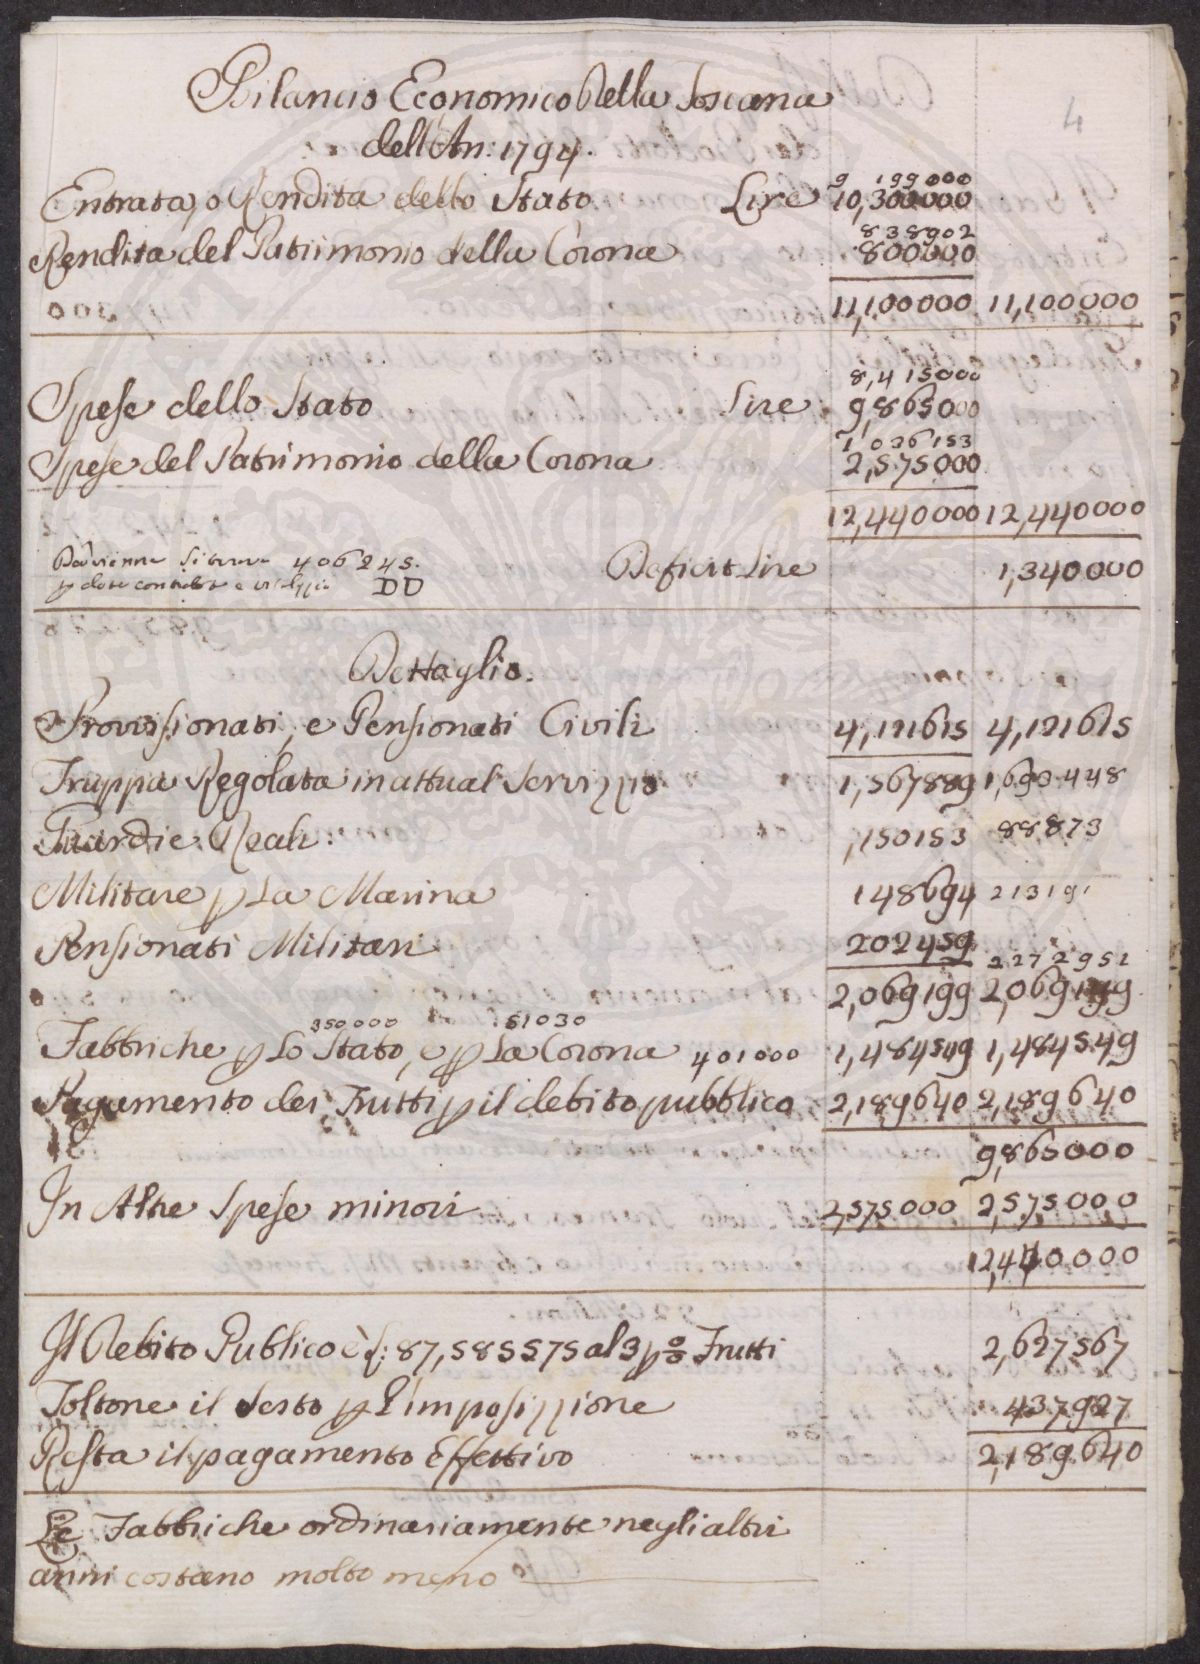 Bilancio Economico Della Toscana
dell'An: 1794.
4
9 199000
Entrata, o Rendita dello Stato Lire 10,300000
838902
Rendita del Patrimonio della Corona 800000
11,100000 11,100000
8,415000
Spese dello Stato Lire 9,865000
1036153
Spese del Patrimonio della Corona 2,575000
12,440000 12,440000
406245.
DD
Deficit Lire 1,340000
Dettaglio.
Provisionati, e Pensionati Civili 4,121615 4,121615
Truppa Regolata in attual Servizzio 1,567889 1,693448
Guardie Reali: ,150153 88873
Militare p La Marina 148694 213191
Pensionati Militari 202459
2272952
2,069199 2,069199
350000 51030
Fabbriche p Lo Stato, e p La Corona 401000 1,484549 1,484549
Pagamento dei Frutti p il debito pubblico 2,189640 2,189640
9,865000
In Altre Spese minori 2,575000 2,575000
12,440000
Il Debito Publico è £: 87,585575 al 3 p % Frutti 2,627567
Toltone il Sesto p L'imposizzione 437927
Resta il pagamento Effettivo 2,189640
Le Fabbriche ordinariamente negli altri
anni costano molto meno